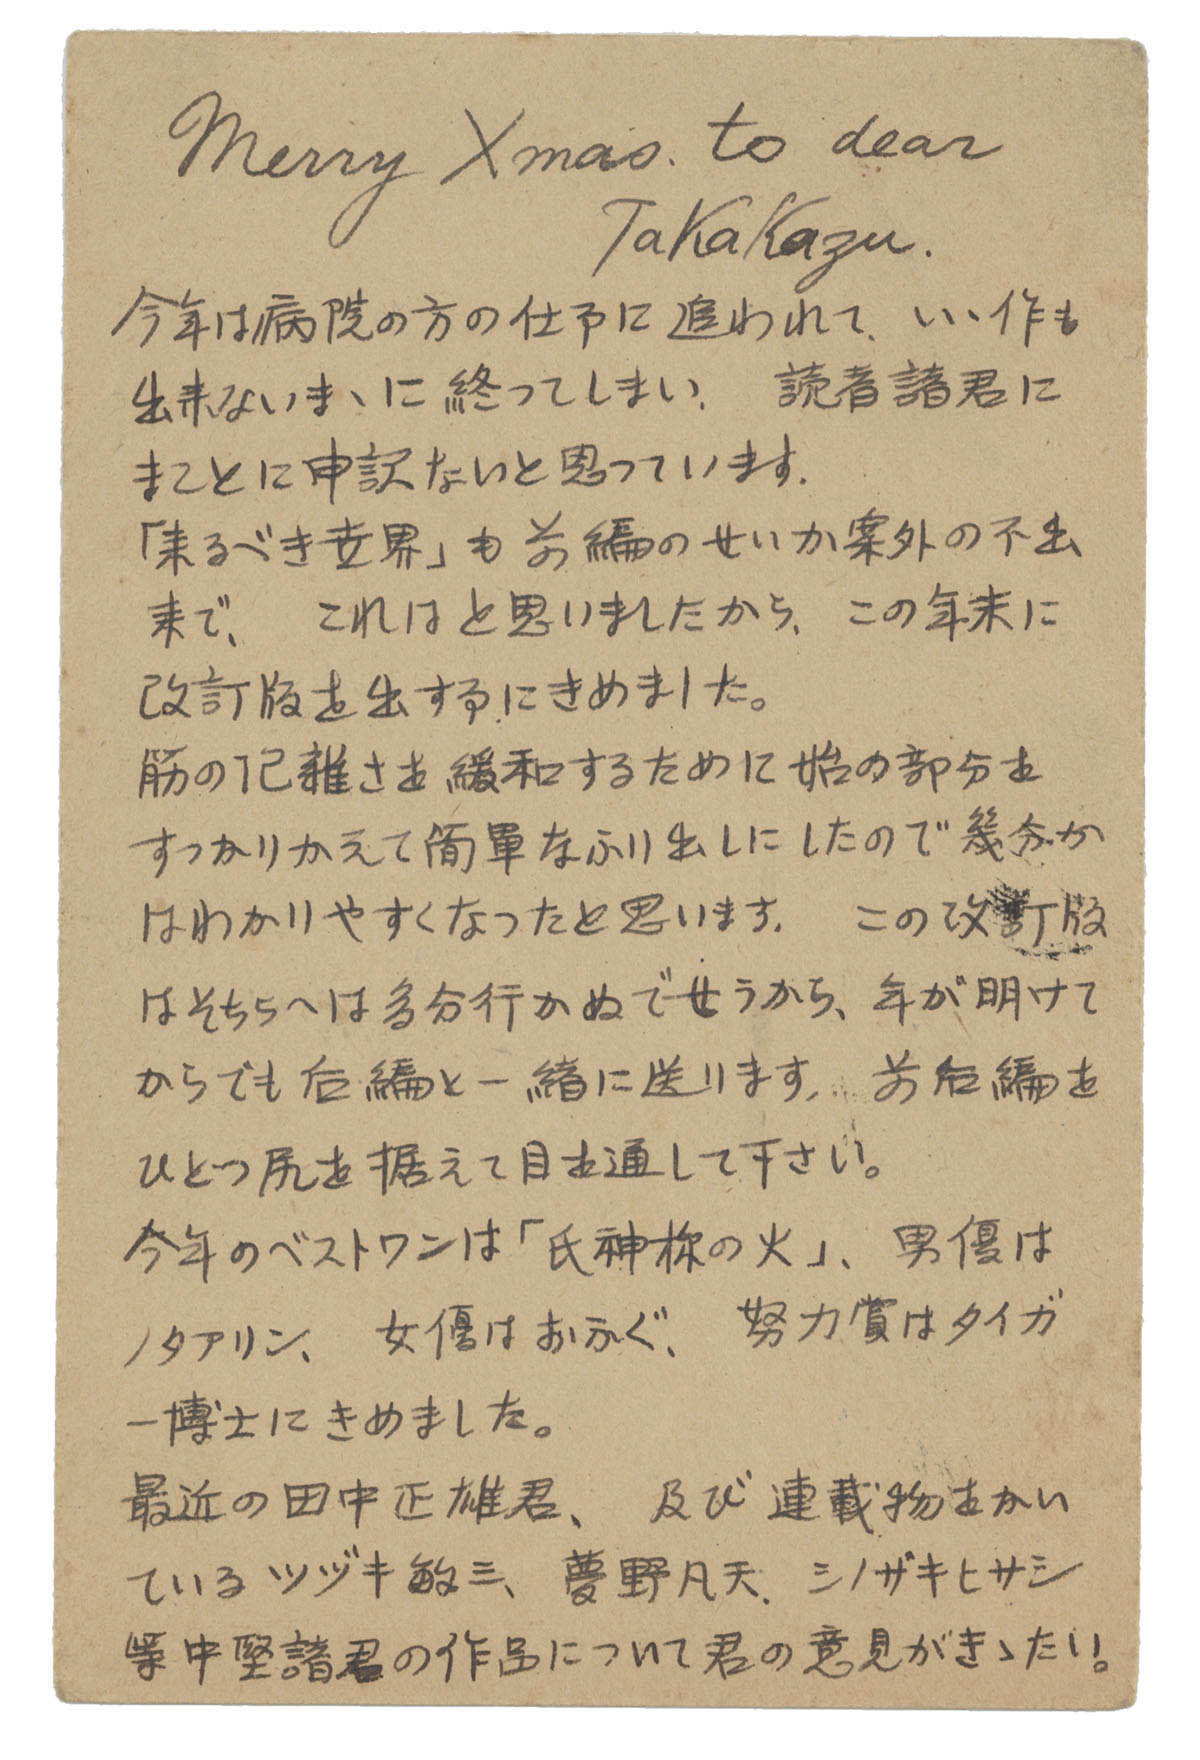 Merry Xmas. to dear
Takakazu.
今年は病院の方の仕予に追われて、いゝ作も
出来ないまゝに終ってしまい、読者諸君に
まことに申訳ないと思っています.
「来るべき世界」も前編のせいか案外の不出
来で、これはと思いましたから、この年末に
改訂版を出す予にきめました。
筋の複雑さを緩和するために始の部分を
すっかりかえて簡単なふり出しにしたので幾分か
はわかりやすくなったと思います. この改訂版
はそちらへは多分行かぬでせうから、年が明けて
からでも后編と一緒に送ります. 前后編を
ひとつ尻を据えて目を通して下さい。
今年のベストワンは「氏神様の火」、男優は
ノタアリン、女優はおふぐ、努力賞はタイガ
ー博士にきめました。
最近の田中正雄君、及び連載物をかい
ているツヅキ敏三、夢野凡天、シノザキヒサシ
柴中堅諸君の作品について君の意見がきゝたい。